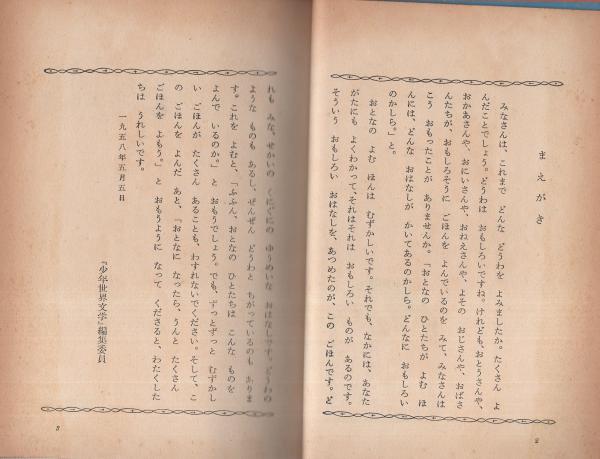 まえがき
みなさんは、これまで どんな どうわを よみましたか。たくさん よ
んだことでしょう。どうわは おもしろいですね。けれども、おとうさんや、
おかあさんや、おにいさんや、おねえさんや、よその おじさんや、おばさ
んたちが、おもしろそうに ごほんを よんでいるのを みて、みなさんは
こう おもったことが ありませんか。「おとなの ひとたちが よむ ほ
んには、どんな おはなしが かいてあるのかしら。どんなに おもしろい
のかしら。」と。
おとなの よむ ほんは むずかしいです。それでも、なかには、あなた
がたにも よくわかって、それはそれは おもしろい ものが あるのです。
そういう おもしろい おはなしを、あつめたのが、この ごほんです。ど
2
れも みな、せかいの くにぐにの ゆうめいな おはなしです。どうわの
ような ものも あるし、ぜんぜん どうわと ちがっているのも ありま
す。これを よむと、「ふふん、おとなの ひとたちは こんな ものを
よんで いるのか。」と おもうでしょう。でも、ずっとずっと むずかし
い ごほんが たくさん あることも、わすれないでください。そして、こ
の ごほんを よんだ あと、「おとなに なったら、うんと たくさん
ごほんを よもう。」と おもうように なって くださると、わたくした
ちは うれしいです。
一九五八年五月五日
『少年世界文学』編集委員
3